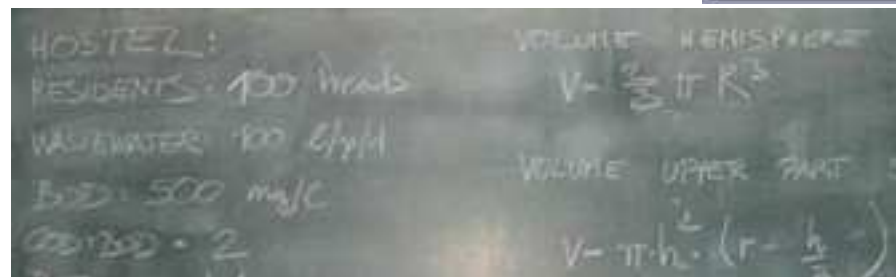 HOSTEL:
RESIDENTS: 100 heads
WASTEWATER 100 l/p/d
BOD: 500 mg/l
COD:BOD = 2
VOLUME HEMISPHERE
V= 2/3 π R³
VOLUME UPPER PART
V= π·h²·(r - h/